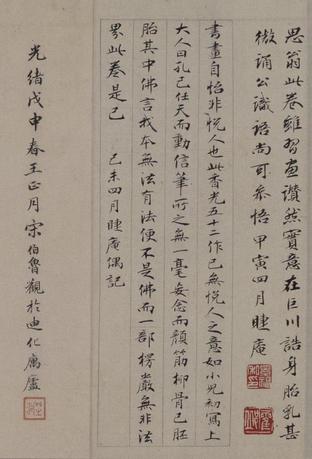 思翁此卷雖習畫讚然實意在巨川誥身胎乳甚
微誦公識語尚可參悟 甲寅四月睫庵
書畫自怡非悅人也此香光五十二作已無悅人之意如小兒初寫上
大人曰孔已任天而動信筆所之無一毫妄念而顏筋柳骨已胚
胎其中佛言我本無法有法便不是佛而一部楞嚴無非法
界此卷是已 己未四月睫庵偶記
光緒戊申春王正月宋伯魯觀於迪化寓廬